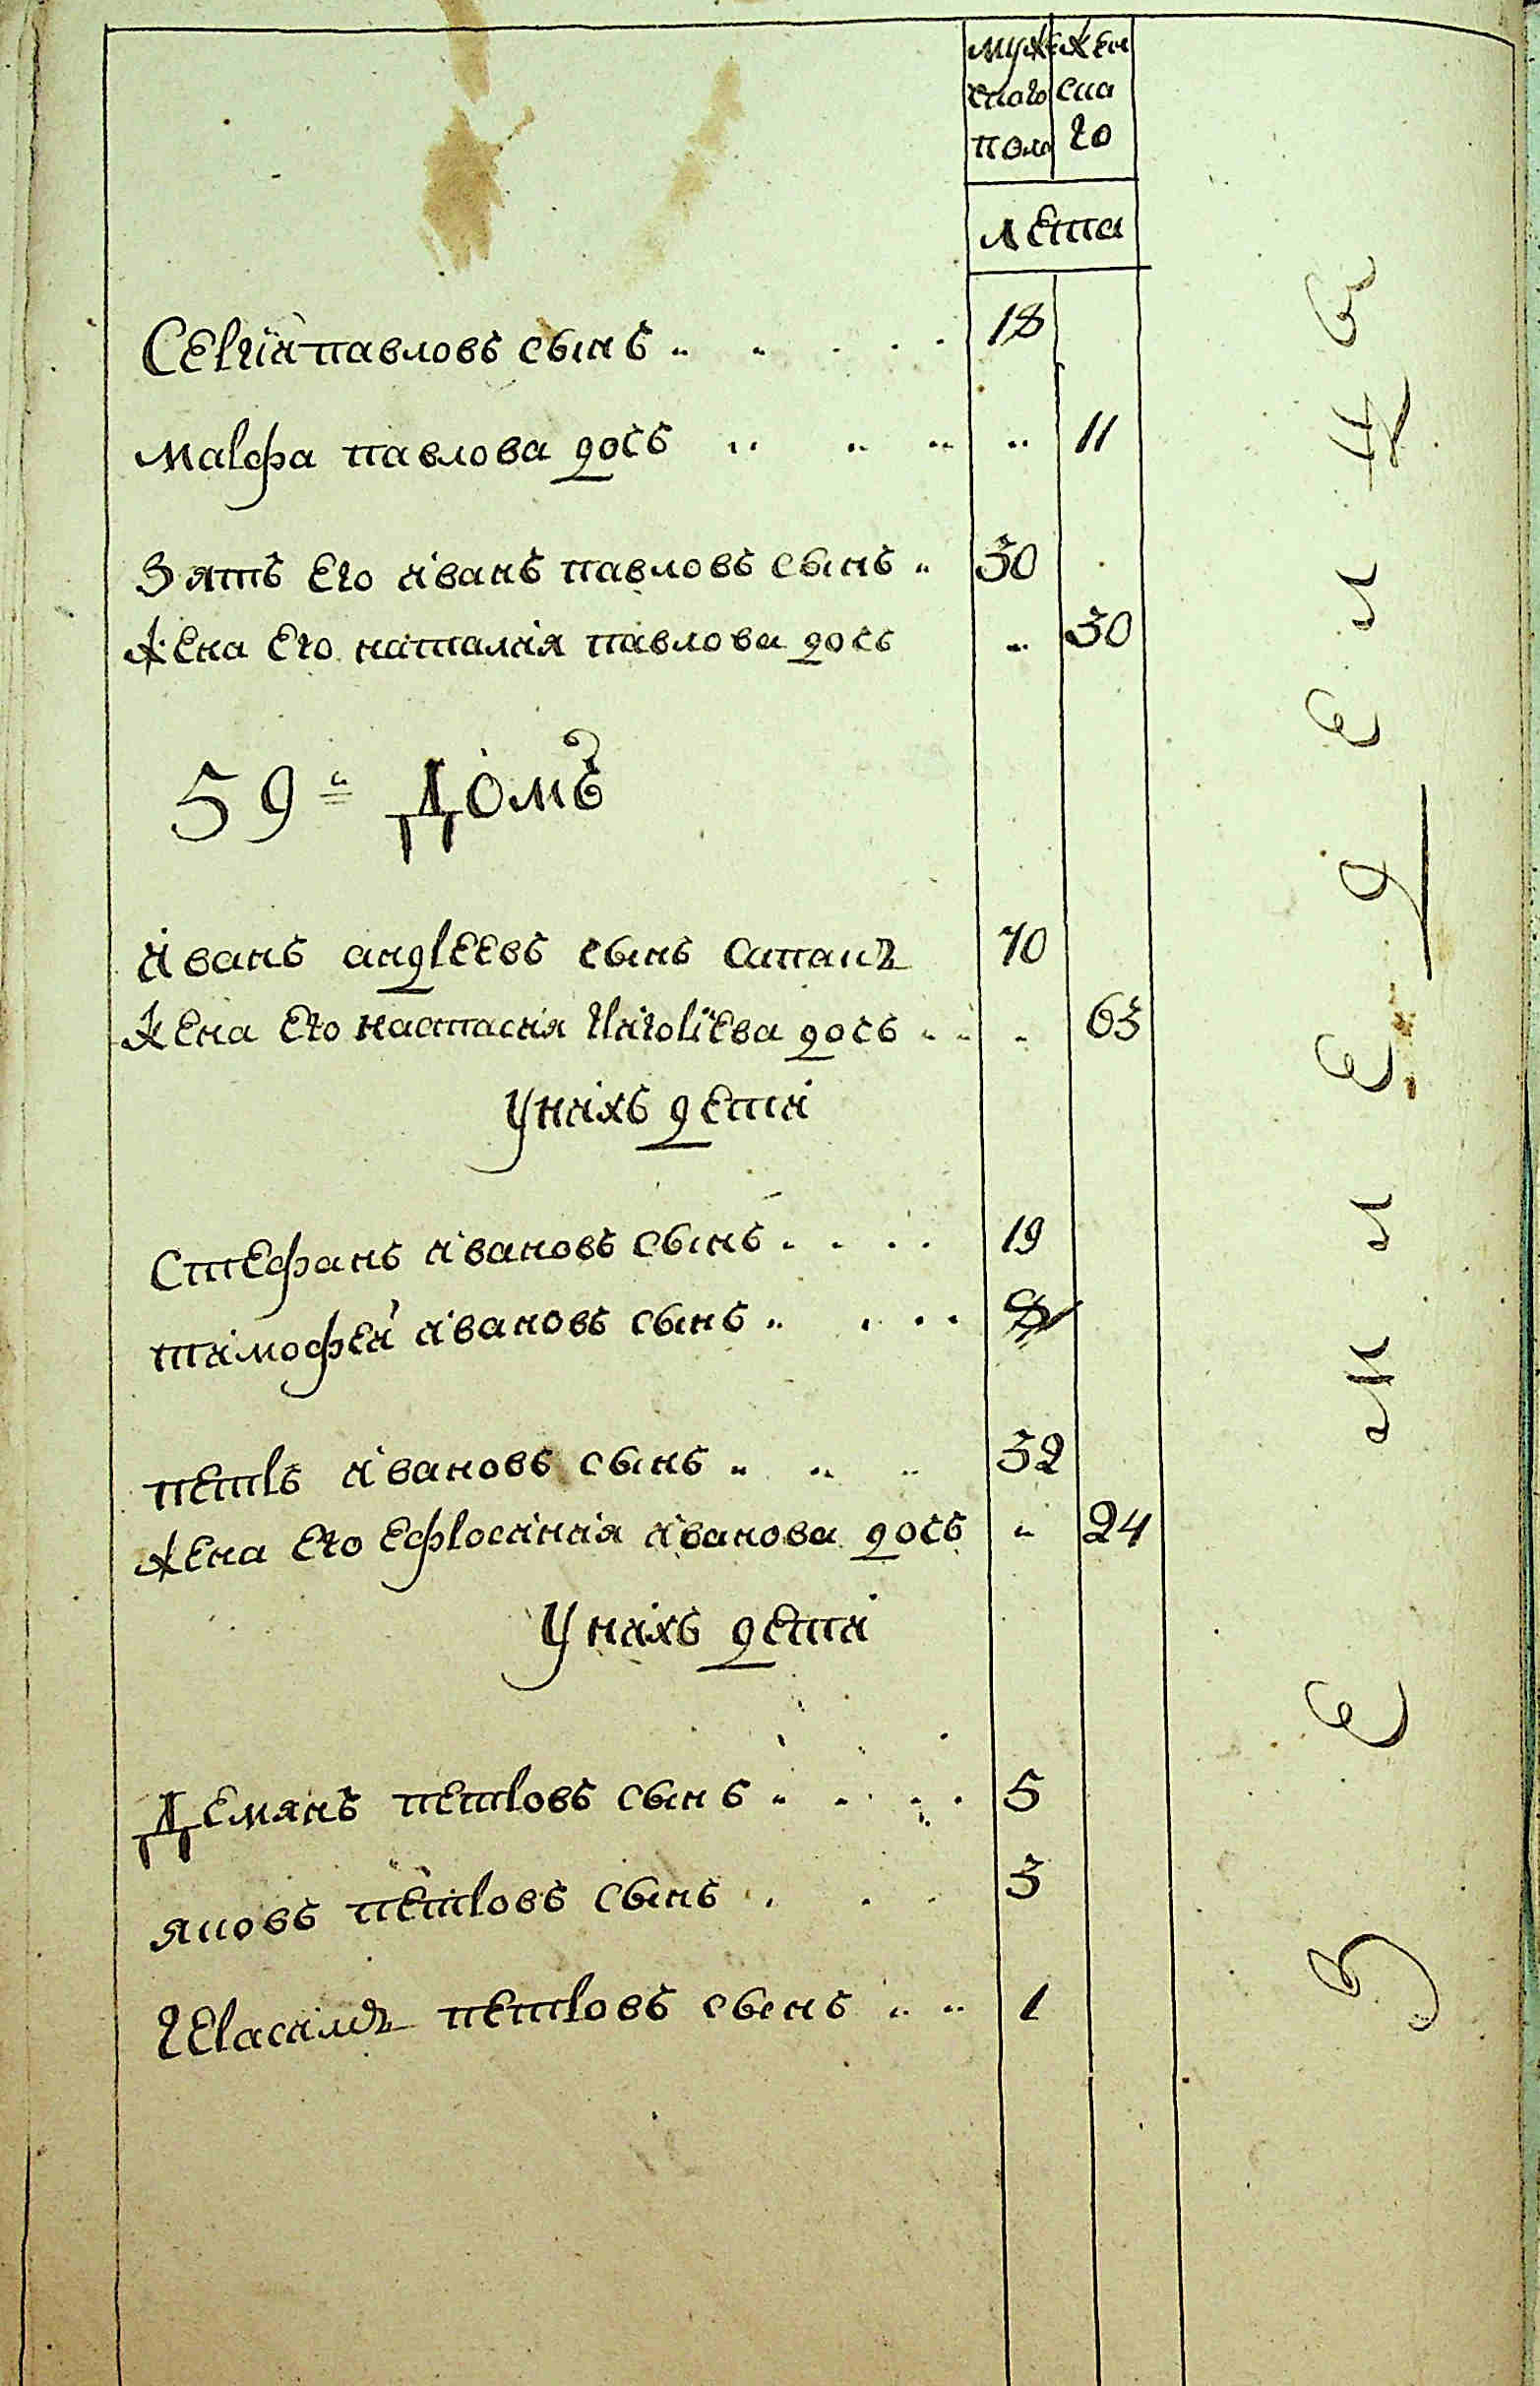 мужескаго пола женскаго
лета
Сергїи павловъ сынъ 18
марфа павлова дочь 11
Зять его иванъ павловъ сынъ 30
жена его наталия павлова дочь 30
59й домъ
иванъ андреевъ сынъ 70
жена его настасия григорїева дочь 63
У нихъ дети
Стефанъ ивановъ сынъ 19
тимофей ивановъ сынъ 8
петръ ивановъ сынъ 32
жена его ефросиния иванова дочь 24
У нихъ дети
Демянъ петровъ сынъ 5
яковъ петровъ сынъ 3
Герасимъ петровъ сынъ 1